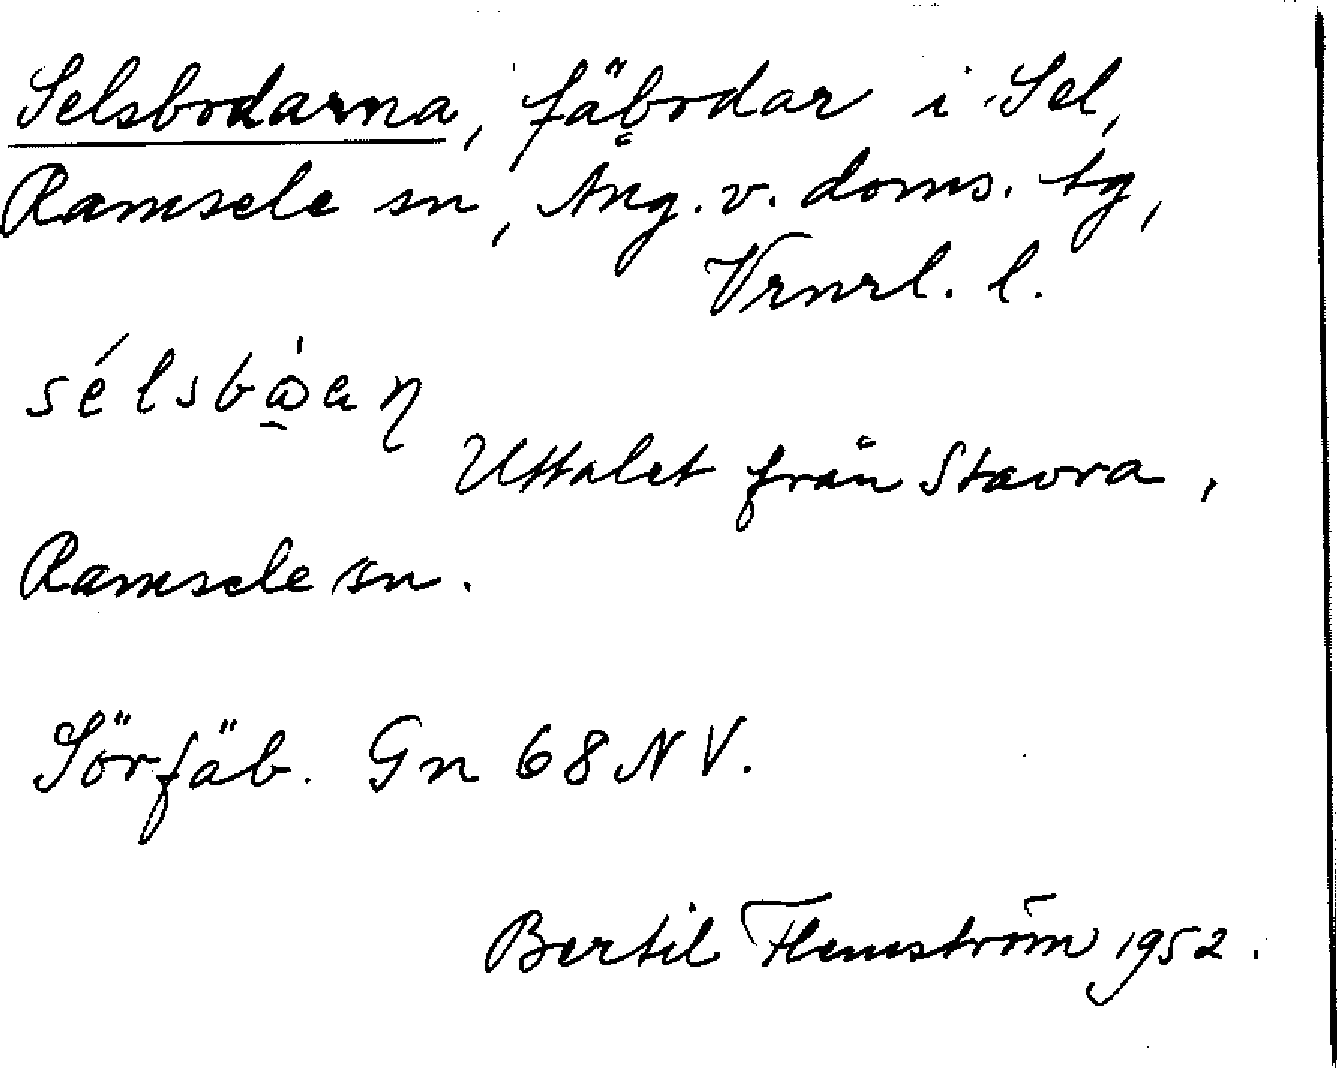 Selsbodarna, fäbodar i Sel,
Ramsele sn, Ång. v. doms. tg,
Vrnrl. l.
Uttalet från Stavra,
Ramsele sn.
Sörfäb. Gn 68 NV.
Bertil Flemström 1952.